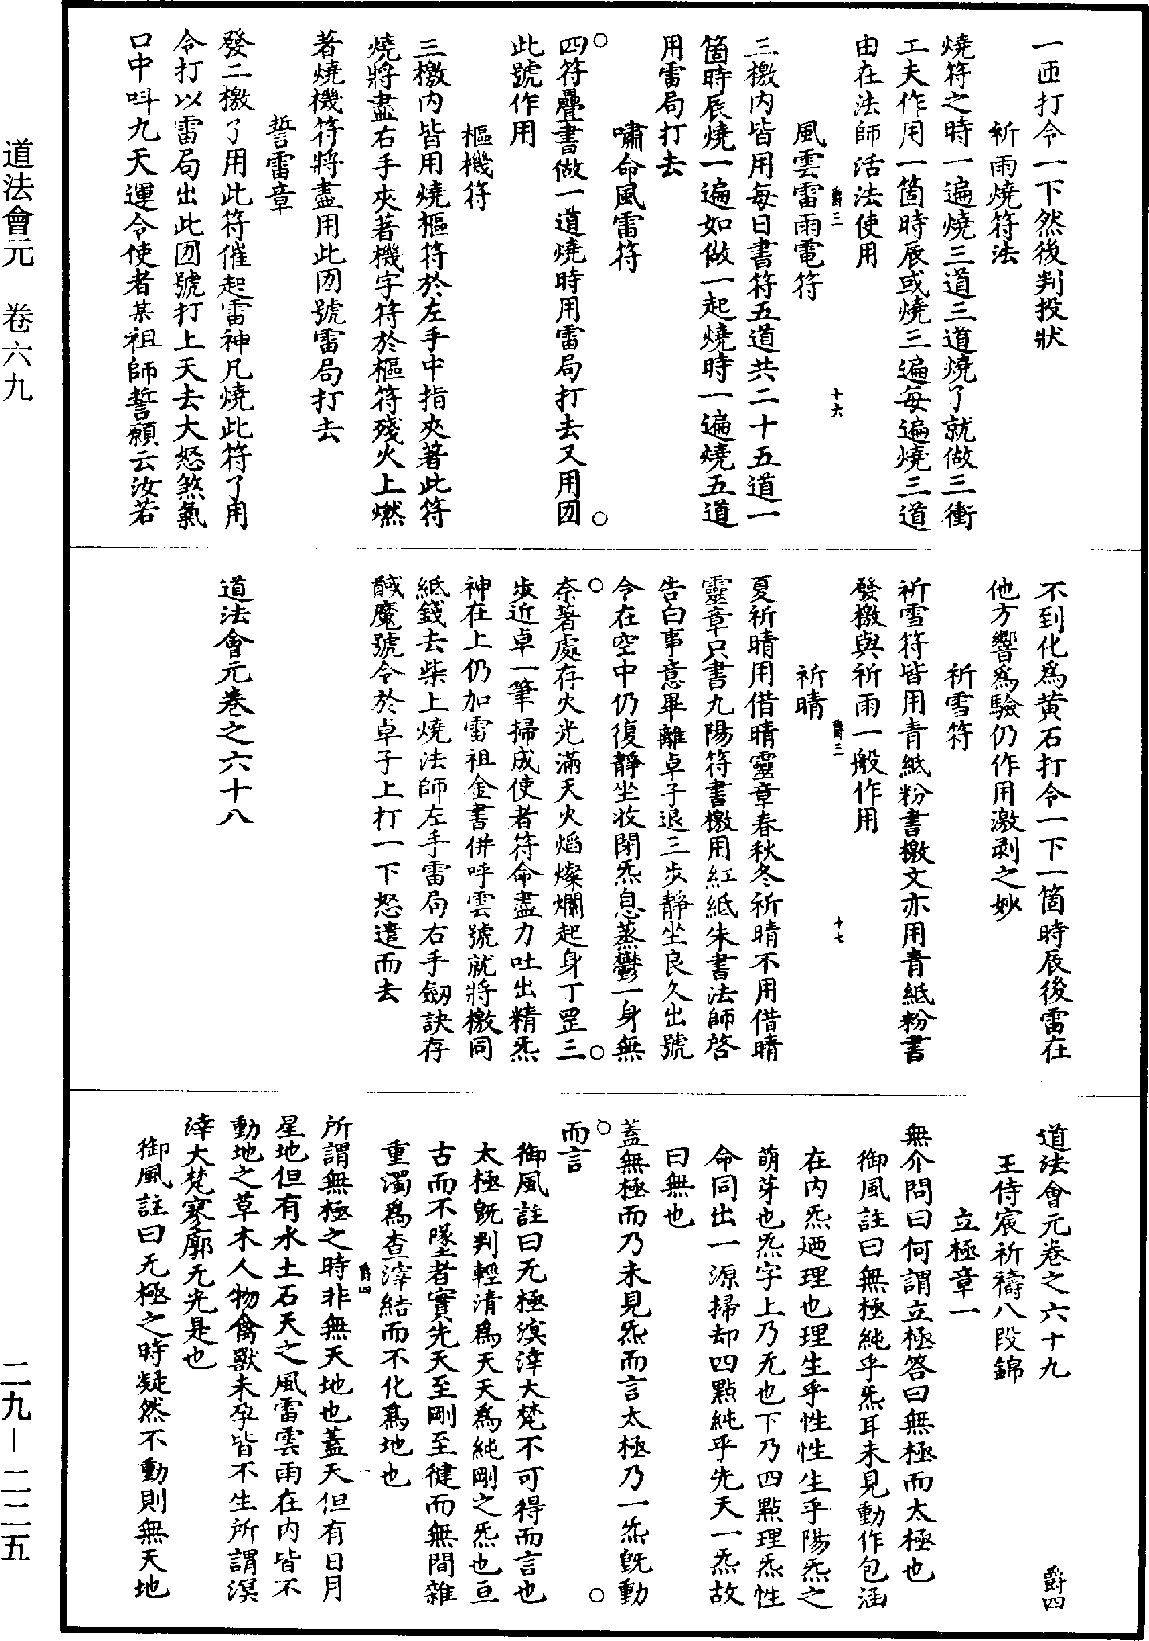 一匝打令一下然後判投狀
祈雨燒符法
燒符之時一遍燒三道三道燒了就做三衝
工夫作用一箇時辰或燒三遍每遍燒三道
由在法師活法使用
爵三
十六
風雲雷雨電符
三檄內皆用每日書符五道共二十五道一
箇時辰燒一遍如做一起燒時一遍燒五道
用雷局打去
嘯命風雷符
四符疊書做一道燒時用雷局打去又用囝
此號作用
樞機符
三檄內皆用燒樞符於左手中指夾著此符
燒將盡右手夾著機字符於樞符殘火上燃
著燒機符將盡用此囝號雷局打去
誓雷章
發二檄了用此符催起雷神凡燒此符了用
令打以雷局出此囝號打上天去大怒煞氣
口中呌九天運令使者某祖師誓願云汝若
不到化為黃石打令一下一箇時辰後雷在
他方響為驗仍作用激剥之妙
祈雪符
祈雪符皆用青紙粉書檄文亦用青紙粉書
發檄與祈雨一般作用
爵三
十七
祈晴
夏祈晴用借晴靈章春秋冬祈晴不用借晴
靈章只書九陽符書檄用紅紙朱書法師啓
告白事意畢離卓子退三步靜坐良久出號
令在空中仍復靜坐收閉炁息蒸鬱一身無
奈著處存火光滿天火焰燦爛起身丁罡三
步近卓一筆掃成使者符命盡力吐出精炁
神在上仍加雷祖金書併呼雲號就將檄同
紙錢去柴上燒法師左手雷局右手劒訣存
馘魔號令於卓子上打一下怒遣而去
道法會元卷之六十八
道法會元卷之六十九
爵四
王侍宸祈禱八段錦
立極章一
無介問曰何謂立極答曰無極而太極也
御風註曰無極純乎炁耳未見動作包涵
在內炁廼理也理生乎性性生乎陽炁之
萌芽也炁字上乃无也下乃四點理炁性
命同出一源掃却四點純乎先天一炁故
曰無也
蓋無極而乃未見炁而言太極乃一炁旣動
而言
御風註曰无極溟涬大梵不可得而言也
太極旣判輕清為天天為純剛之炁也亘
古而不墜者實先天至剛至健而無間雜
重濁為查滓結而不化為地也
爵四
所謂無極之時非無天地也蓋天但有日月
星地但有水土石天之風雷雲雨在內皆不
動地之草木人物禽獸未孕皆不生所謂溟
涬大梵寥廓无光是也
御風註曰无極之時凝然不動則無天地
道法會元　卷六九
二九—二二五